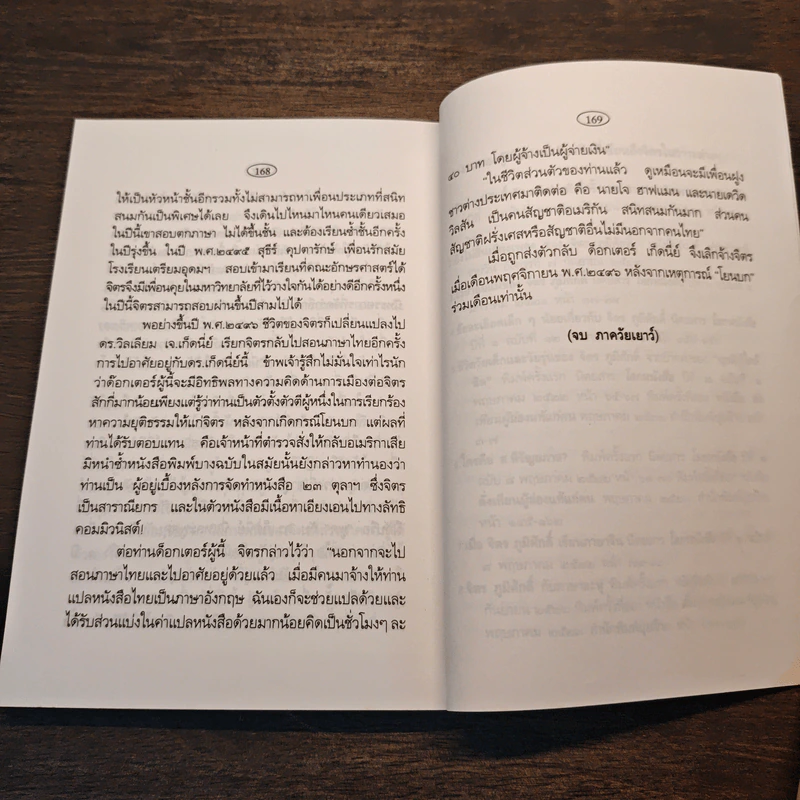 168
ให้เป็นหัวหน้าชั้นอีกรวมทั้งไม่สามารถหาเพื่อนประเภทที่สนิท
สนมกันเป็นพิเศษได้เลย จึงเดินไปไหนมาไหนคนเดียวเสมอ
ในปีนี้เขาสอบตกภาษา ไม่ได้ขึ้นชั้น และต้องเรียนซ้ำชั้นอีกครั้ง
ในปีรุ่งขึ้น ในปี พ.ศ.๒๔๙๕ สุธีร์ คุปตารักษ์ เพื่อนรักสมัย
โรงเรียนเตรียมอุดมฯ สอบเข้ามาเรียนที่คณะอักษรศาสตร์ได้
จิตรจึงมีเพื่อนคุยในมหาวิทยาลัยที่ไว้วางใจกันได้อย่างดีอีกครั้งหนึ่ง
ในปีนี้จิตรสามารถสอบผ่านขึ้นปีสามไปได้
พอย่างขึ้นปี พ.ศ.๒๔๙๖ ชีวิตของจิตรก็เปลี่ยนแปลงไป
ดร.วิลเลียม เจ.เก็ดนีย์ เรียกจิตรกลับไปสอนภาษาไทยอีกครั้ง
การไปอาศัยอยู่กับดร.เก็ดนีย์นี้ ข้าพเจ้ารู้สึกไม่มั่นใจเท่าไรนัก
ว่าด๊อกเตอร์ผู้นี้จะมีอิทธิพลทางความคิดด้านการเมืองต่อจิตร
สักกี่มากน้อยเพียงแต่รู้ว่าท่านเป็นตัวตั้งตัวตีผู้หนึ่งในการเรียกร้อง
หาความยุติธรรมให้แก่จิตร หลังจากเกิดกรณีโยนบก แต่ผลที่
ท่านได้รับตอบแทน คือเจ้าหน้าที่ตำรวจสั่งให้กลับอเมริกาเสีย
มิหนำซ้ำหนังสือพิมพ์บางฉบับในสมัยนั้นยังกล่าวหาทำนองว่า
ท่านเป็น ผู้อยู่เบื้องหลังการจัดทำหนังสือ ๒๓ ตุลาฯ ซึ่งจิตร
เป็นสาราณียกร และในตัวหนังสือมีเนื้อหาเอียงเอนไปทางลัทธิ
คอมมิวนิสต์!
ต่อท่านด็อกเตอร์ผู้นี้ จิตรกล่าวไว้ว่า "นอกจากจะไป
สอนภาษาไทยและไปอาศัยอยู่ด้วยแล้ว เมื่อมีคนมาจ้างให้ท่าน
แปลหนังสือไทยเป็นภาษาอังกฤษ ฉันเองก็จะช่วยแปลด้วยและ
ได้รับส่วนแบ่งในค่าแปลหนังสือด้วยมากน้อยคิดเป็นชั่วโมงๆ ละ
169
๔๐ บาท โดยผู้จ้างเป็นผู้จ่ายเงิน"
"ในชีวิตส่วนตัวของท่านแล้ว ดูเหมือนจะมีเพื่อนฝูง
ชาวต่างประเทศมาติดต่อ คือ นายโจ ฮาฟแมน และนายเดวิด
วิลสัน เป็นคนสัญชาติอเมริกัน สนิทสนมกันมาก ส่วนคน
สัญชาติฝรั่งเศสหรือสัญชาติอื่นไม่มีนอกจากคนไทย"
เมื่อถูกส่งตัวกลับ ด็อกเตอร์ เก็ดนี่ย์ จึงเลิกจ้างจิตร
เมื่อเดือนพฤศจิกายน พ.ศ.๒๔๙๖ หลังจากเหตุการณ์ "โยนบก"
ร่วมเดือนเท่านั้น
(จบ ภาควัยเยาว์)